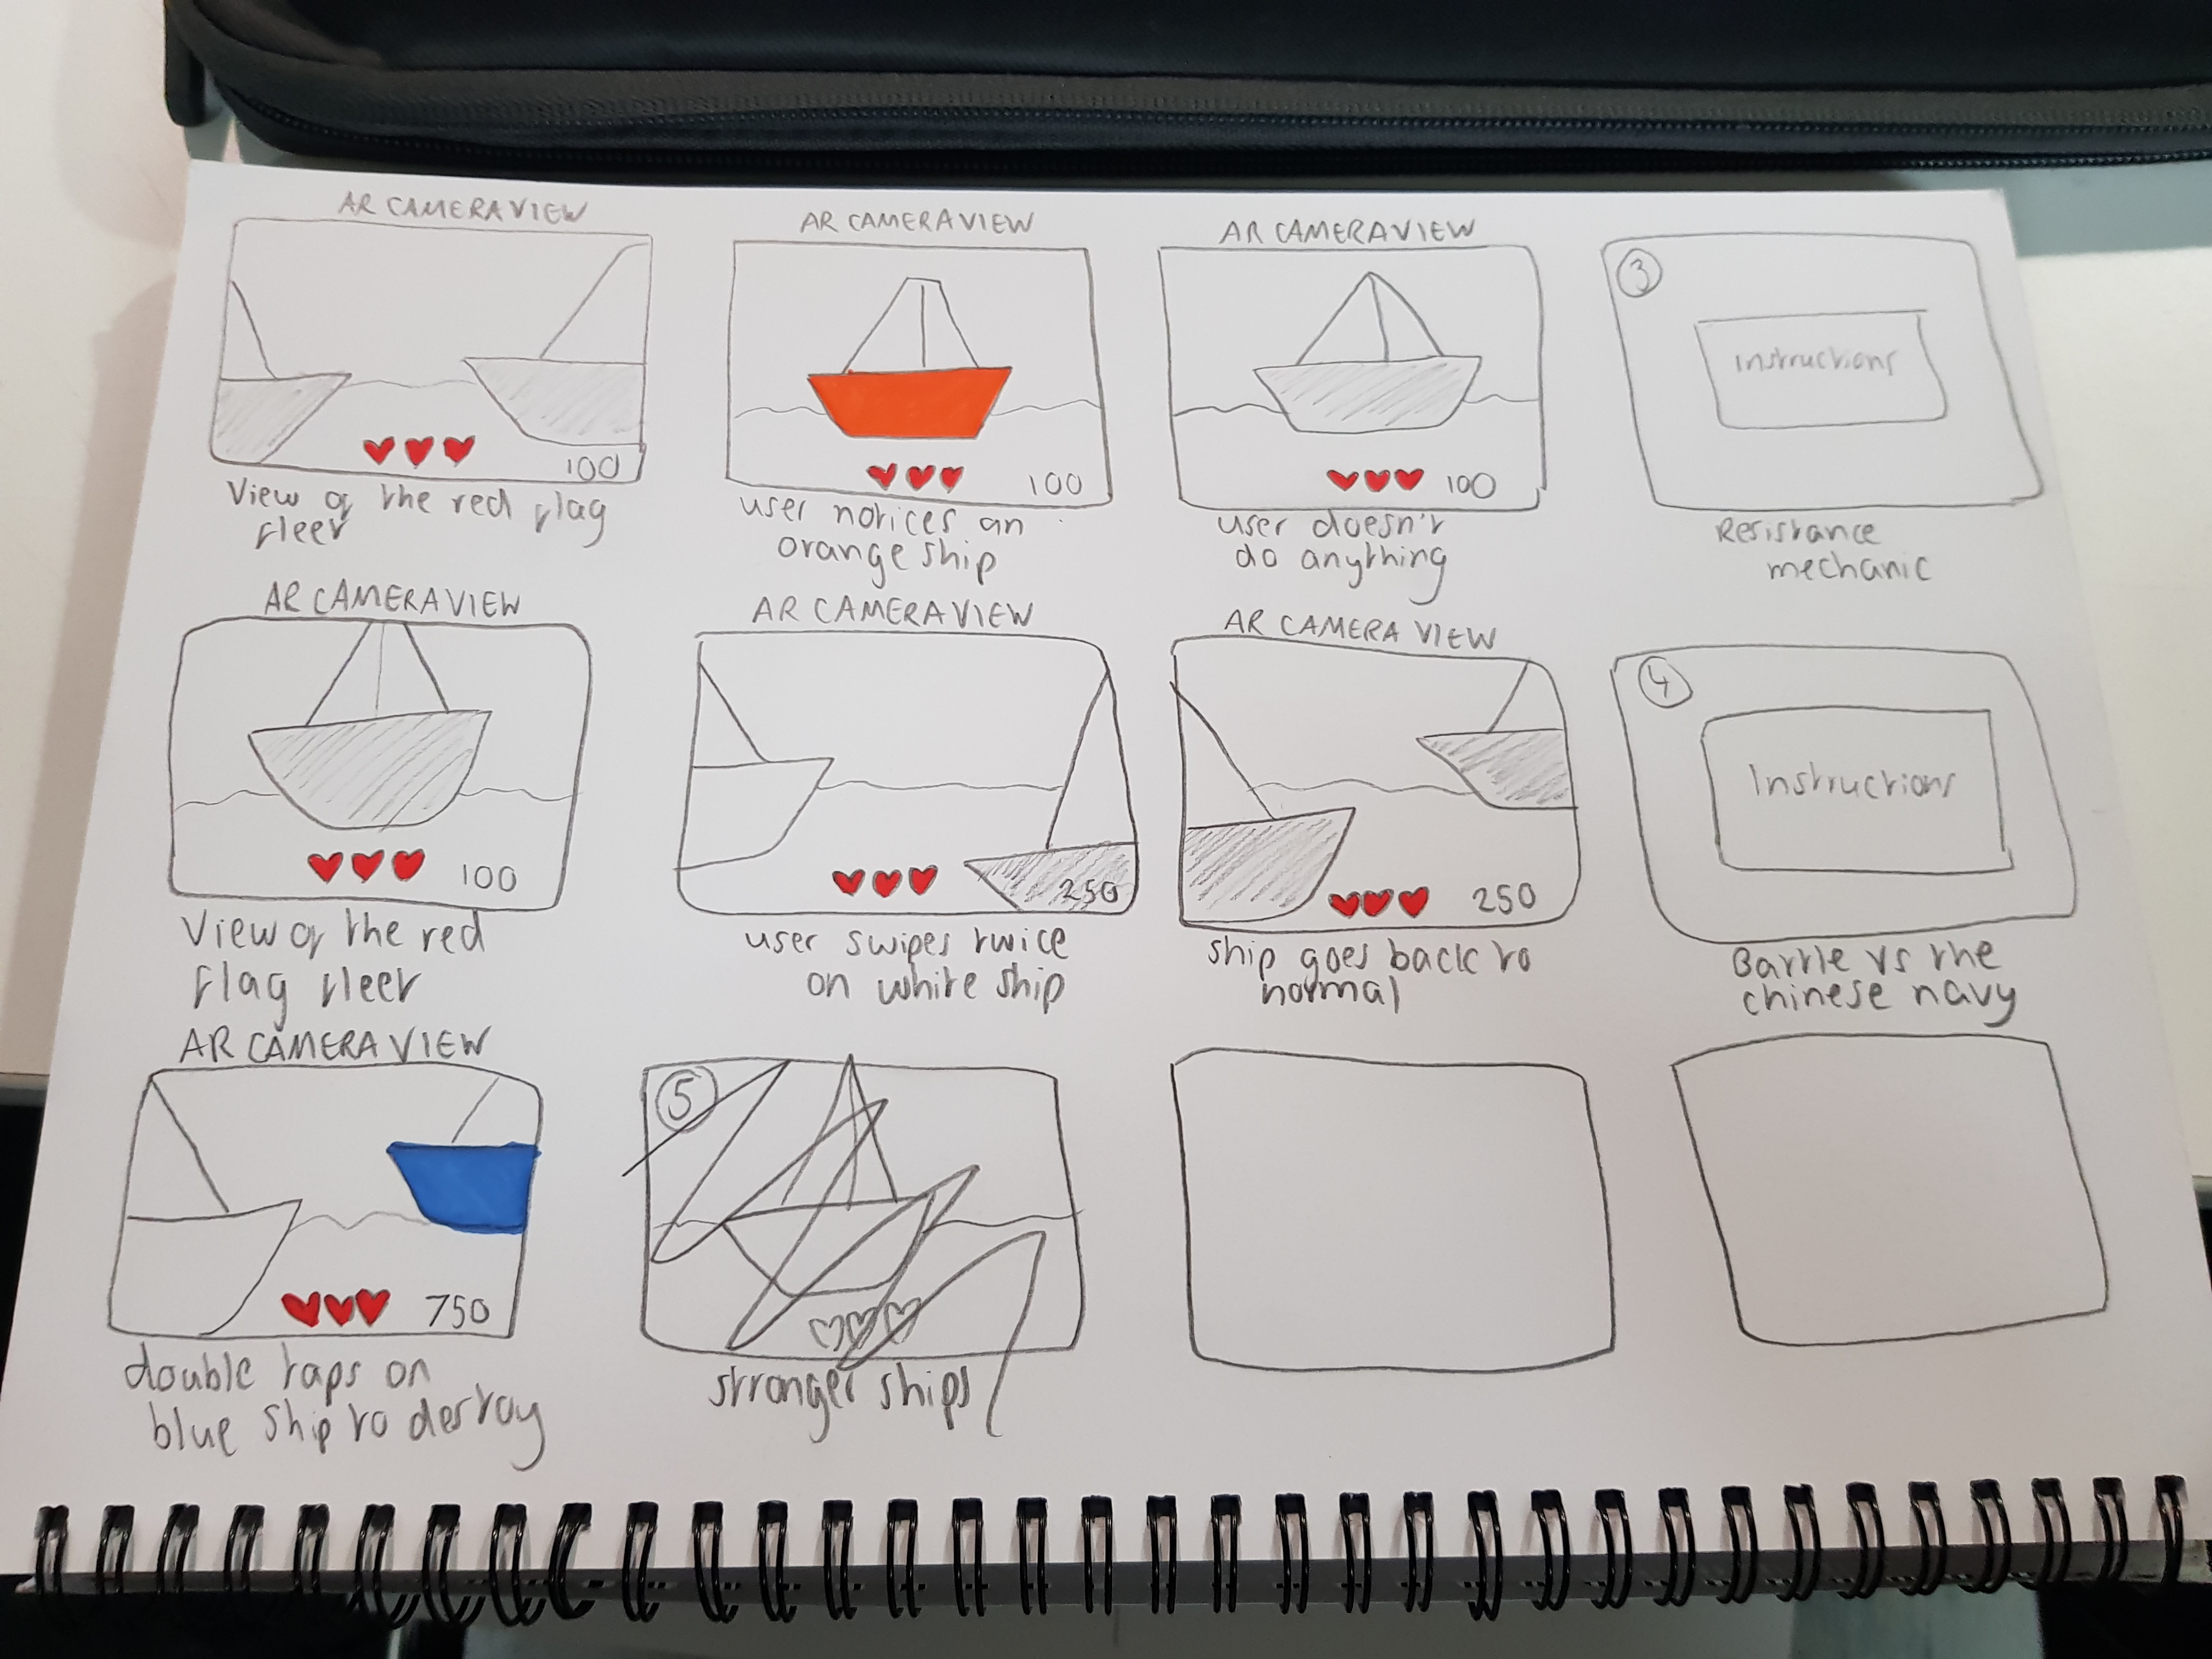 AR CAMERA VIEW
100
View of the red flag
fleet
AR CAMERA VIEW
100
user notices an
orange ship
AR CAMERA VIEW
100
user doesn't
do anything
3
Instructions
Resistance
mechanic
AR CAMERA VIEW
100
View of the red
flag fleet
AR CAMERA VIEW
250
user swipes twice
on white ship
AR CAMERA VIEW
250
ship goes back to
normal
4
Instructions
Battle vs the
chinese navy
AR CAMERA VIEW
750
double taps on
blue ship to destroy
5
stronger ships